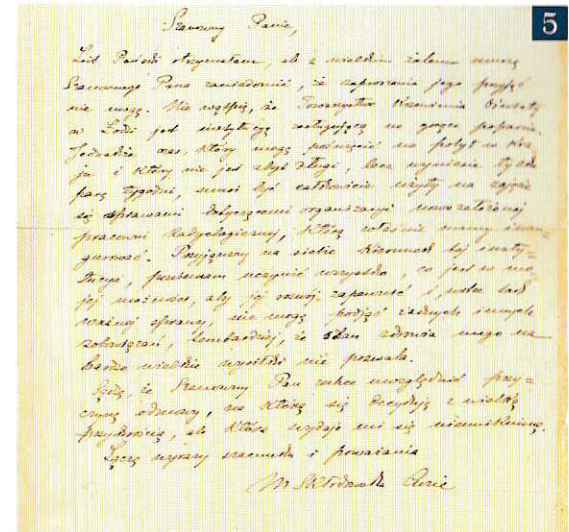 5
Szanowny Panie,
List Pański otrzymałam, ale z wielkim żalem muszę
Szanownego Pana zawiadomić, że zaproszenia jego przyjąć
nie mogę. Nie wątpię, że Towarzystwo Krzewienia Oświaty
w Łodzi jest instytucją zasługującą na gorące poparcie.
Jednakże czas, który mogę poświęcić na pobyt w Kra-
ju i który nie jest zbyt długi, lecz wyniesie tylko
parę tygodni, musi być całkowicie użyty na zajęcie
się sprawami dotyczącemi organizacyi nowo założonej
pracowni Radyologicznej, którą właśnie mamy inau-
gurować. Przyjąwszy na siebie kierunek tej insty-
tucyi, powinnam uczynić wszystko, co jest w mo-
jej możności, aby jej rozwój zapewnić i, wobec tak
ważnej sprawy, nie mogę podjąć żadnych innych
zobowiązań, tembardziej, że stan zdrowia mego na
bardzo wielkie wysiłki nie pozwala.
Sądzę, że Szanowny Pan zechce uwzględnić przy-
czynę odmowy, na którą się decyduję z wielką
przykrością, ale która wydaje mi się nieuniknioną.
Łączę wyrazy szacunku i poważania
M Skłodowska Curie